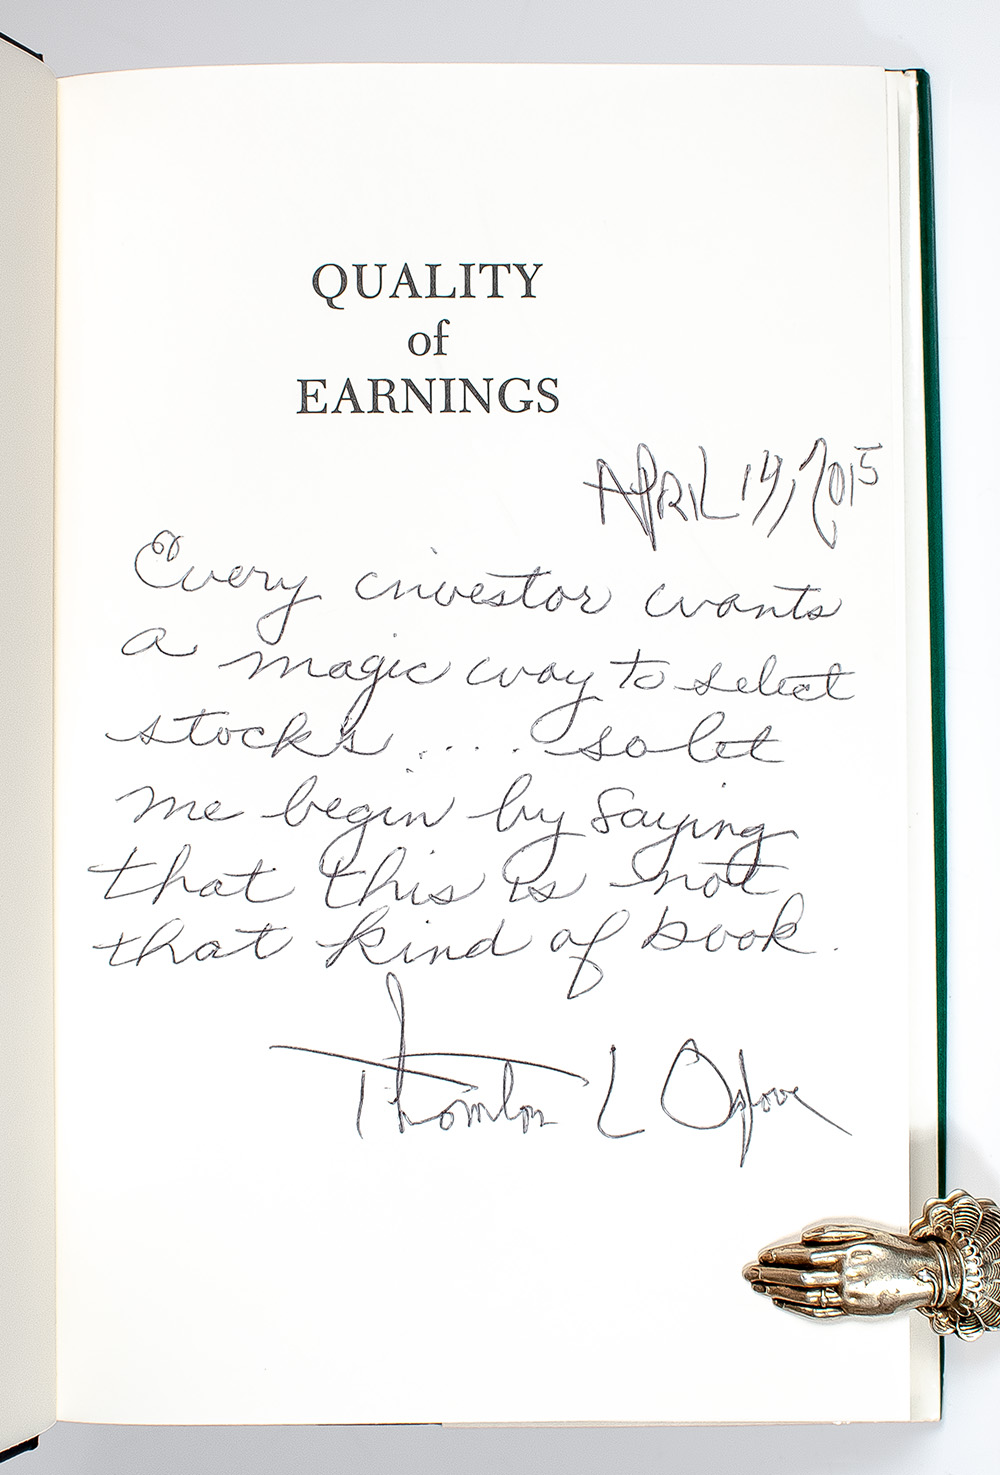 QUALITY
of
EARNINGS
APRIL 14, 2015
Every investor wants
a magic way to select
stocks .... so let
me begin by saying
that this is not
that kind of book.
Thornton L Oglove